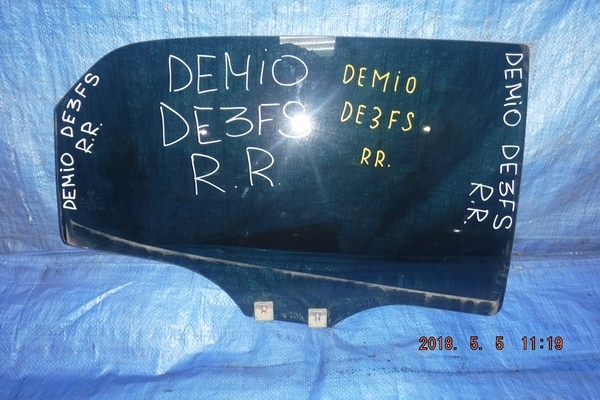 DEMiO DE3FS
R.R.
DEMiO
DE3FS
R.R.
DEMiO
DE3FS
RR.
DEMiO DE3FS
R.R.
2018. 5. 5 11:19